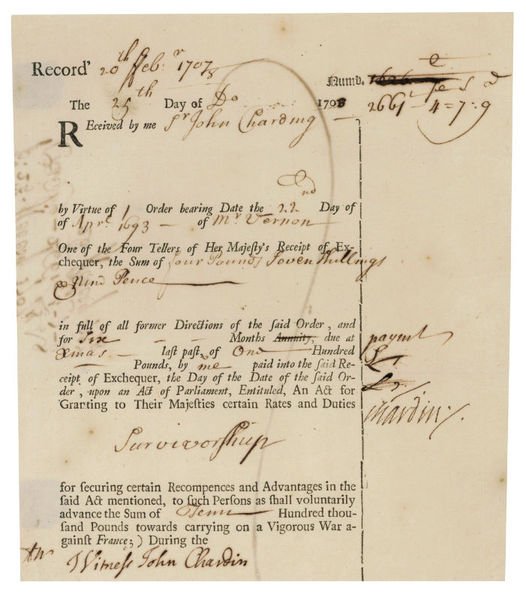 Record' 20th Feb:r 1707/8
Numb.
The 25th Day of Do 1708 2661 4=7:9
Received by me Sr John Charding
by Virtue of 1 Order bearing Date the 22nd Day of
of Apr: 1693 of Mr Vernon
One of the Four Tellers of Her Majesty's Receipt of Ex-
chequer, the Sum of four Pounds Seven Shillings
& Nine Pence
in full of all former Directions of the said Order, and
for Six Months Annuity, due at
Xmas last past, of One Hundred
Pounds, by me paid into the said Re-
ceipt of Exchequer, the Day of the Date of the said Or-
der, upon an Act of Parliament, Entituled, An Act for
Granting to Their Majesties certain Rates and Duties
paymt
Chardin
Survivorship
for securing certain Recompences and Advantages in the
said Act mentioned, to such Persons as shall voluntarily
advance the Sum of Tenn Hundred thou-
sand Pounds towards carrying on a Vigorous War a-
gainst France;) During the
Witness John Chardin